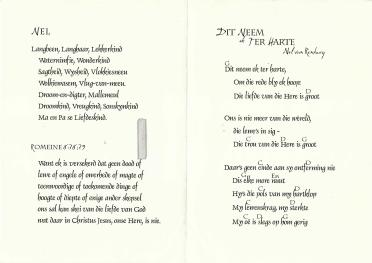 NEL
Langbeen, Langhaar, Lekkerkind
Waternimfie, Wonderkind
Sagtheid, Wysheid, Vlokkiesneen
Welkiewasem, Vlug-van-meen
Droom-en-digter, Mallemeul
Droomkind, Vreugkind, Sonskynkind
Ma en Pa se Liefdeskind.
ROMEINE 8:38,39
Want ek is versekerd dat geen dood of
lewe of engele of owerhede of magte of
teenwoordige of toekomende dinge of
hoogte of diepte of enige ander skepsel
ons sal kan skei van die liefde van God
wat daar in Christus Jesus, onse Here, is nie.
DIT NEEM
ek TER HARTE
Nel van Rensburg
G
Dit neem ek ter harte,
Om die rede bly ek hoop:
C D G
Die liefde van die Here is groot
Ons is nie weer van die wêreld,
die lewe's in sig -
C D G
Die trou van die Here is groot
C D
Daar's geen einde aan sy ontferming nie
G Em
Dis elke more nuut
C D
Hy's die pols van my hartklop
My lewenskrag, my sterkte
C D G
My oë is slegs op hom gerig